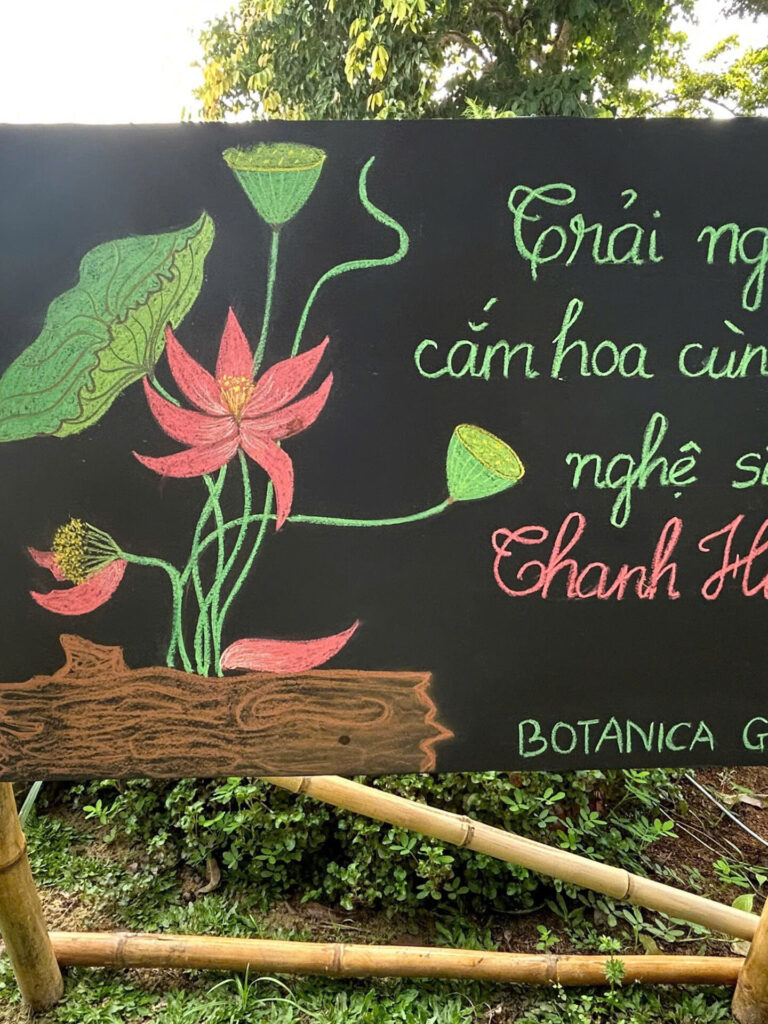 Trải ng
cắm hoa cùn
nghệ sĩ
Thanh H
BOTANICA G